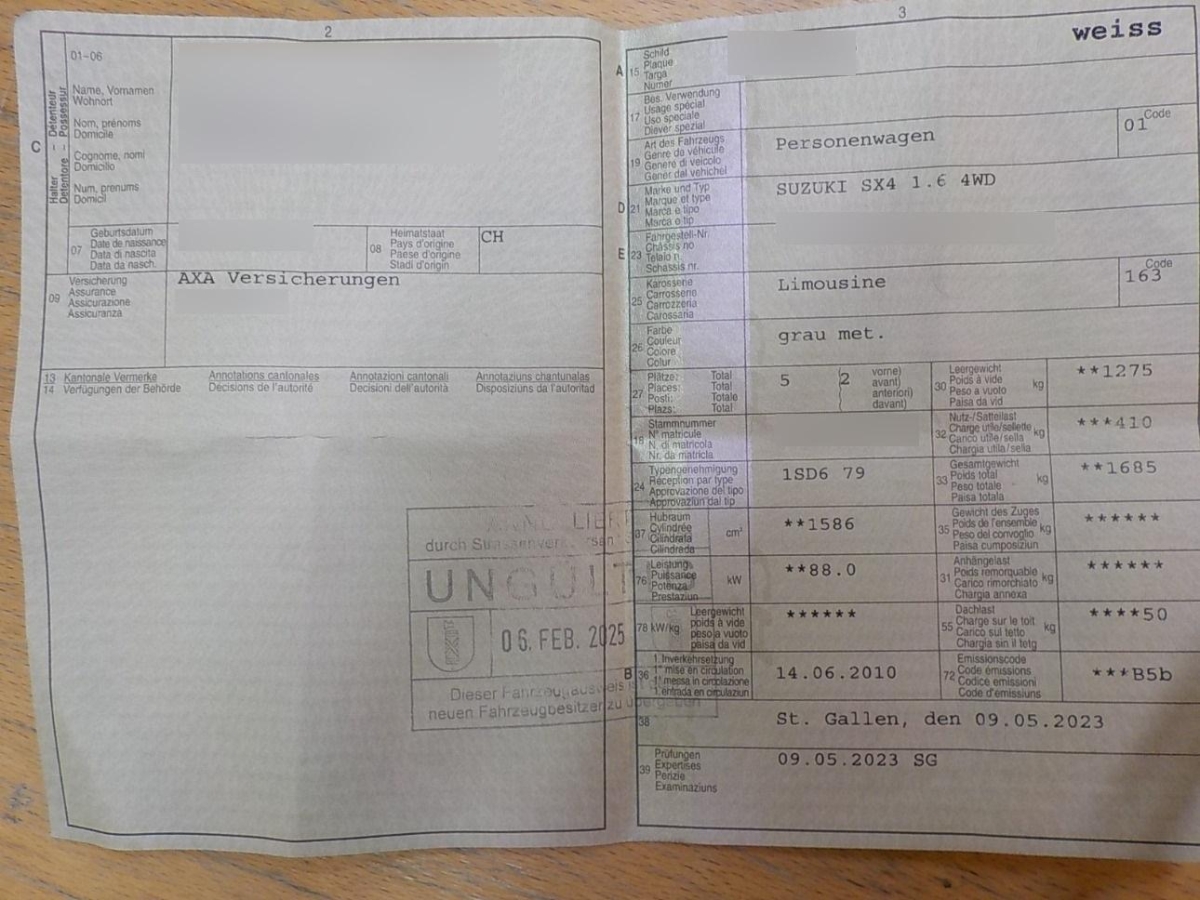 2
C
Halter – Détenteur
Detentore – Possessur
01-06
Name, Vornamen
Wohnort
Nom, prénoms
Domicile
Cognome, nomi
Domicilio
Num, prenums
Domicil
07
Geburtsdatum
Date de naissance
Data di nascita
Data da nasch.
08
Heimatstaat
Pays d'origine
Paese d'origine
Stadi d'origin
CH
09
Versicherung
Assurance
Assicurazione
Assicuranza
AXA Versicherungen
13 Kantonale Vermerke Annotations cantonales Annotazioni cantonali Annotaziuns chantunalas
14 Verfügungen der Behörde Décisions de l'autorité Decisioni dell'autorità Disposiziuns da l'autoritad
durch
UNGÜLT
06. FEB. 2025
Dieser Fahrzeugausweis
neuen Fahrzeugbesitzer zu übergeben
3
weiss
A 15
Schild
Plaque
Targa
Numer
17
Bes. Verwendung
Usage spécial
Uso speciale
Diever spezial
19
Art des Fahrzeugs
Genre de véhicule
Genere di veicolo
Gener dal vehichel
Personenwagen
Code
01
D 21
Marke und Typ
Marque et type
Marca e tipo
Marca e tip
SUZUKI SX4 1.6 4WD
E 23
Fahrgestell-Nr.
Châssis no
Telaio n.
Schassis nr.
25
Karosserie
Carrosserie
Carrozzeria
Carossaria
Limousine
Code
163
26
Farbe
Couleur
Colore
Colur
grau met.
27
Plätze: Total
Places: Total
Posti: Totale
Plazs: Total
5
2
vorne)
avant)
anteriori)
davant)
30
Leergewicht
Poids à vide
Peso a vuoto
Paisa da vid
kg
**1275
18
Stammnummer
N° matricule
N. di matricola
Nr. da matricla
32
Nutz-/Sattellast
Charge utile/sellette
Carico utile/sella
Chargia utila/sella
kg
***410
24
Typengenehmigung
Réception par type
Approvazione del tipo
Approvaziun dal tip
1SD6 79
33
Gesamtgewicht
Poids total
Peso totale
Paisa totala
kg
**1685
37
Hubraum
Cylindrée
Cilindrata
Cilindrada
cm³
**1586
35
Gewicht des Zuges
Poids de l'ensemble
Peso del convoglio
Paisa cumposiziun
kg
******
76
Leistung
Puissance
Potenza
Prestaziun
kW
**88.0
31
Anhängelast
Poids remorquable
Carico rimorchiato
Chargia annexa
kg
******
78 kW/kg
Leergewicht
poids à vide
peso a vuoto
paisa da vid
******
55
Dachlast
Charge sur le toit
Carico sul tetto
Chargia sin il tetg
kg
****50
B 36
1. Inverkehrsetzung
1re mise en circulation
1a messa in circolazione
1. entrada en circulaziun
14.06.2010
72
Emissionscode
Code émissions
Codice emissioni
Code d'emissiuns
***B5b
38
St. Gallen, den 09.05.2023
39
Prüfungen
Expertises
Perizie
Examinaziuns
09.05.2023 SG